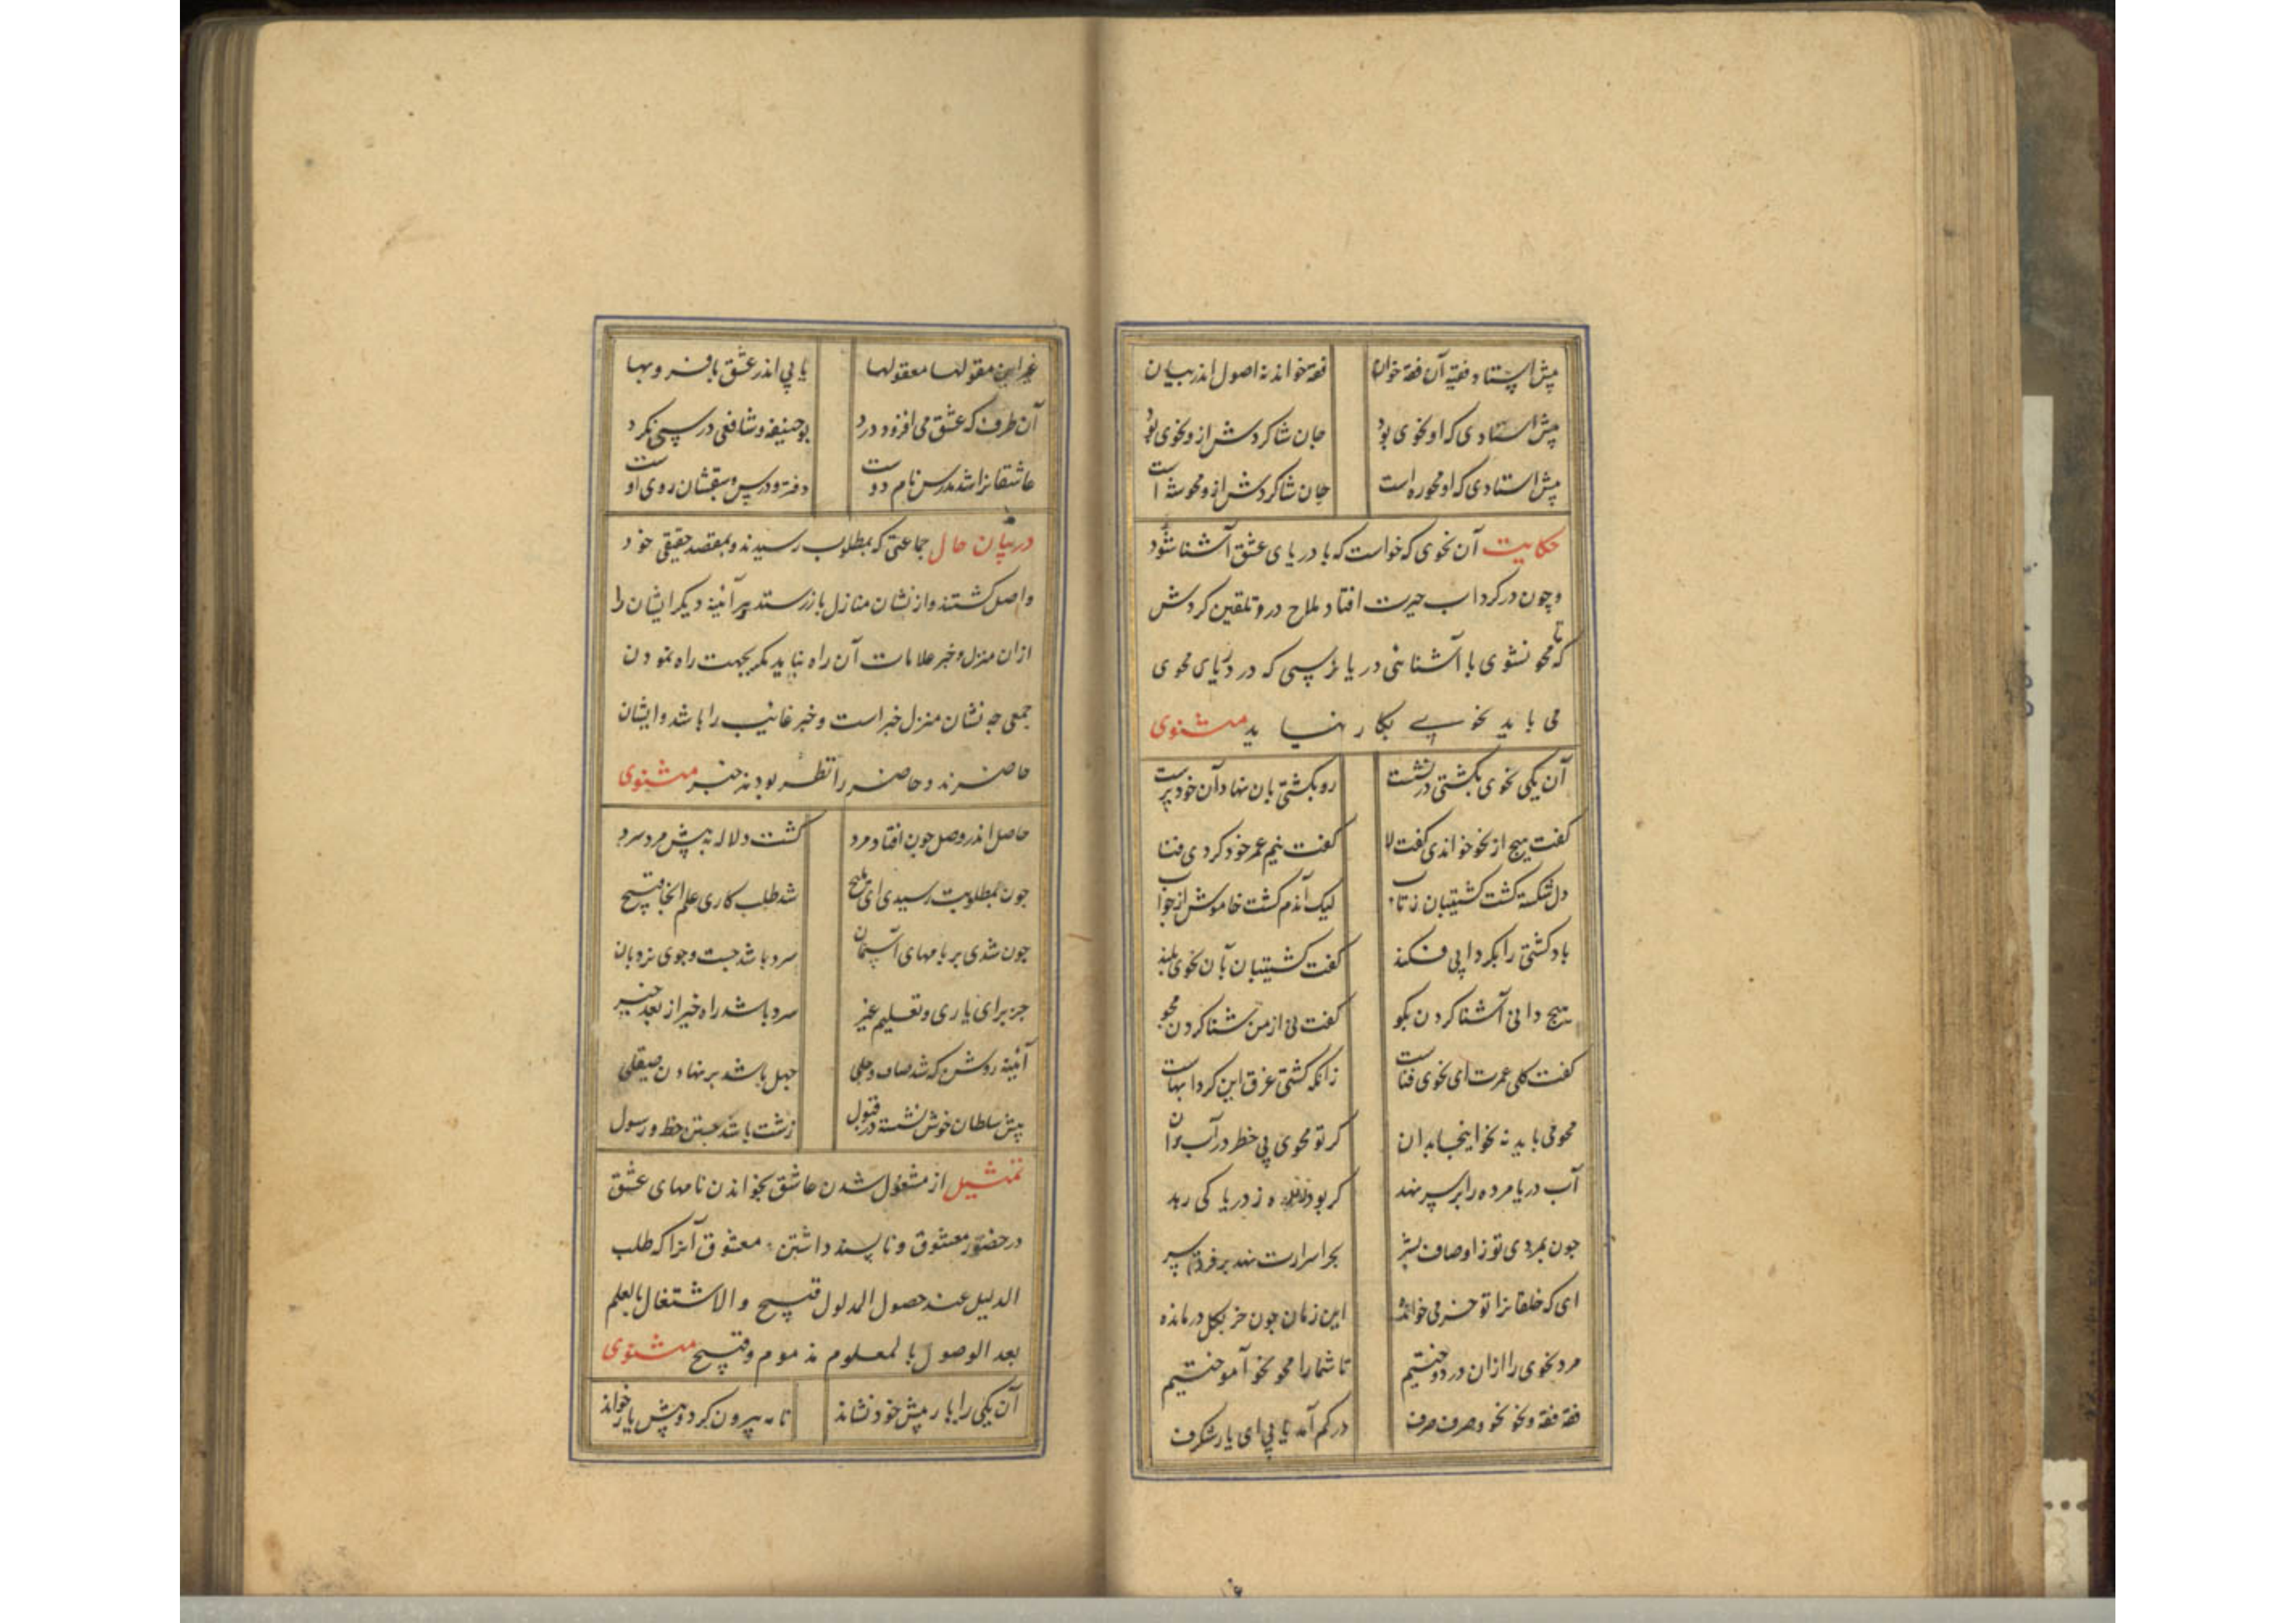 پیش استاد فقیه آن فقه خوان فقه خواند نه اصول اندر بیان
پیش استادی که او نحوی بود جان شاکردش ازو نحوی بود
پیش استادی که او محو ره است جان شاکردش ازو محو شه است
حکایت آن نحوی که خواست که با دریای عشق آشنا شود
و چون در کرداب حیرت افتاد ملاح درو تلقین کردش
که تا محو نشوی با آشنائی دریا نرسی که در دریای محوی
می باید نحوی بکار نیاید مثنوی
آن یکی نحوی بکشتی درنشست رو بکشتی بان نهاد آن خودپرست
کفت هیچ از نحو خواندی کفت لا کفت نیم عمر خود کردی فنا
دل شکسته کشت کشتیبان ز تاب لیک آندم کشت خاموش از جواب
باد کشتی را بکردابی فکند کفت کشتیبان بآن نحوی بلند
هیچ دانی آشنا کردن بکو کفت نی از من شنا کردن مجو
کفت کلی عمرت ای نحوی فناست زانکه کشتی غرق این کردابهاست
محو می باید نه نحو اینجا بدان کر تو محوی بی خطر در آب ران
آب دریا مرده را بر سر نهد کر بود زنده ز دریا کی رهد
جون بمردی تو ز اوصاف بشر بحر اسرارت نهد بر فرق سر
ای که خلقانرا تو خر می خوانده این زمان جون خر بکل درمانده
مرد نحوی را ازان در دوختیم تا شما را محو نحو آموختیم
فقه فقه و نحو نحو و صرف صرف در کم آمد یابی ای یار شکرف
غیر این مقولها معقولها یابی اندر عشق با فر و بها
آن طرف که عشق می افزود درد بوحنیفه و شافعی درسی نکرد
عاشقانرا شد مدرس نام دوست دفتر و درس و سبقشان روی اوست
در بیان حال جماعتی که بمطلوب رسیدند و بمقصد حقیقی خود
واصل کشتند و از نشان منازل باز رستند هر آینه دیکر ایشان را
ازان منزل و خبر علامات آن راه نباید مکر بجهت راه نمودن
جمعی جه نشان منزل خبر است و خبر غایب را باشد و ایشان
حاضرند و حاضر را نظر بود نه خبر مثنوی
حاصل اندر وصل جون افتاد مرد کشت دلاله به پیش مرد سرد
جون بمطلوبت رسیدی ای ملیح شد طلب کاری علم اکنون قبیح
جون شدی بر بامهای آسمان سرد باشد جست و جوی نردبان
جز برای یاری و تعلیم غیر سرد باشد راه خیر از بعد خیر
آئینه روشن که شد صاف و جلی جهل باشد بر نهادن صیقلی
پیش سلطان خوش نشسته در قبول زشت باشد جستن خط و رسول
تمثیل از مشغول شدن عاشق بخواندن نامهای عشق
در حضور معشوق و ناپسند داشتن معشوق آنرا که طلب
الدلیل عند حصول المدلول قبیح والاشتغال بالعلم
بعد الوصول بالمعلوم مذموم و قبیح مثنوی
آن یکی را یار پیش خود نشاند نامه بیرون کرد و پیش یار خواند